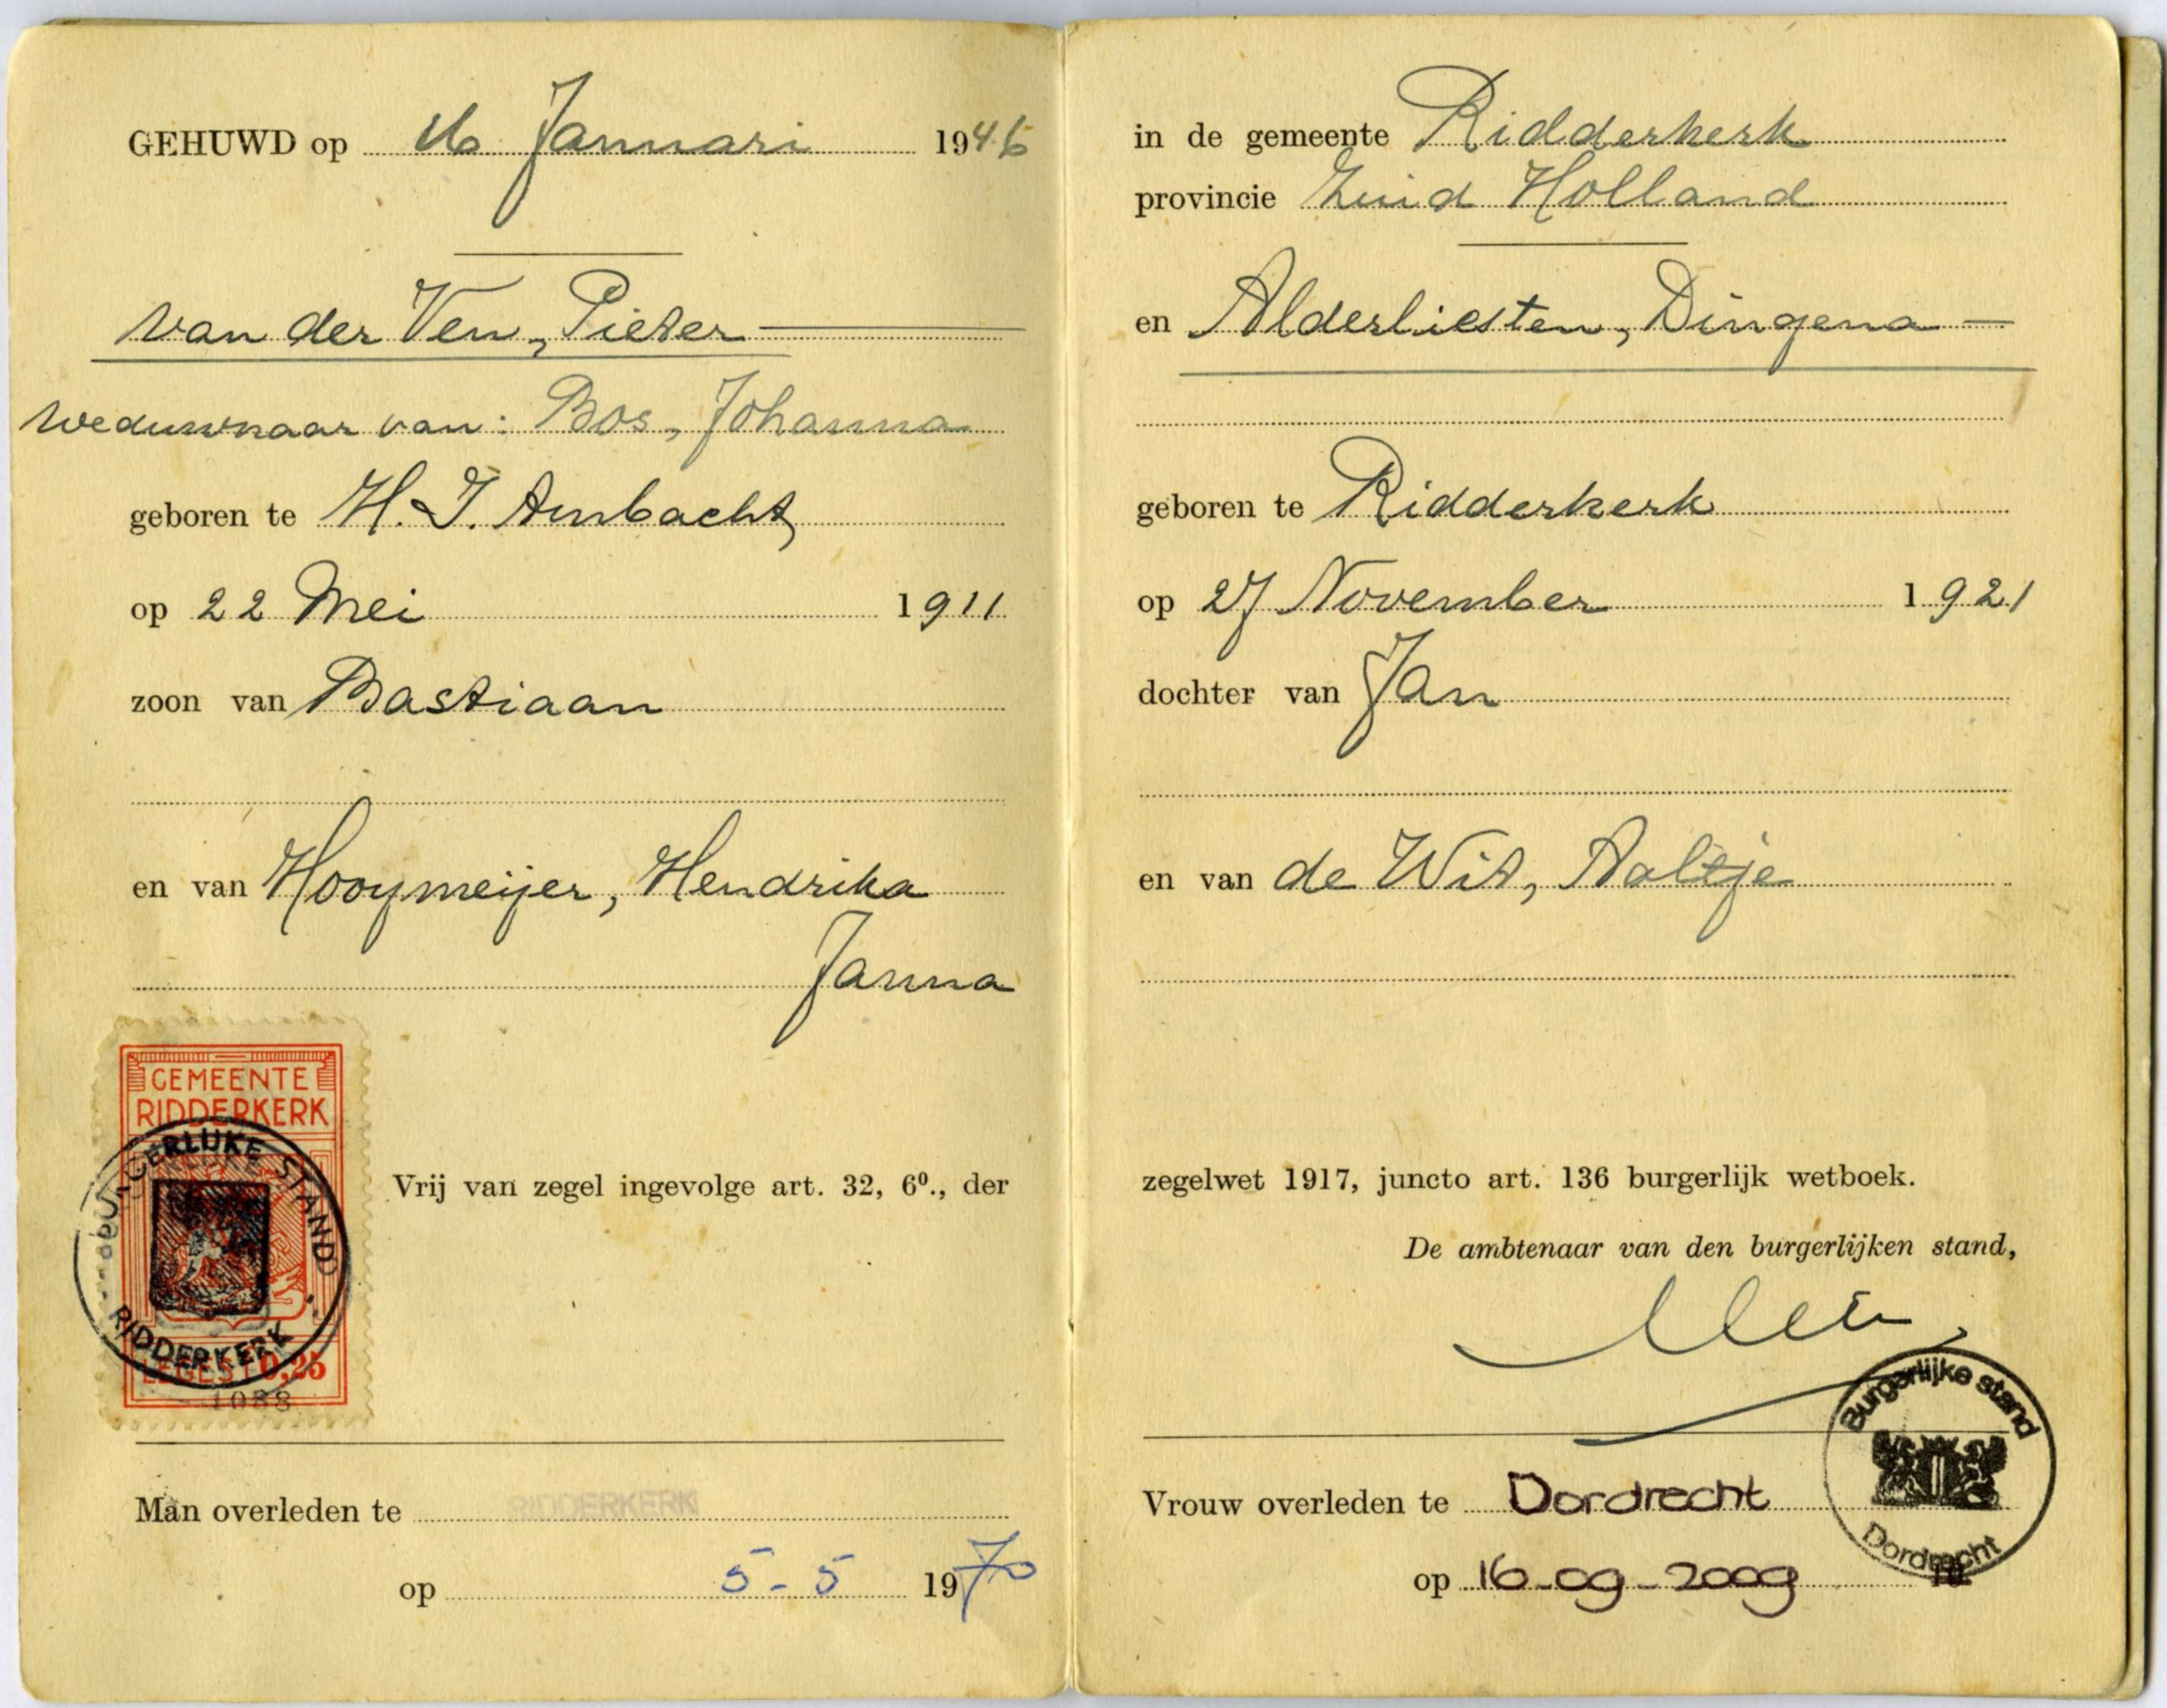 GEHUWD op 16 Januari 1946
van der Ven, Pieter
weduwnaar van: Bos, Johanna
geboren te H. I. Ambacht,
op 22 Mei 1911
zoon van Bastiaan
en van Hooymeijer, Hendrika
Janna
GEMEENTE
RIDDERKERK
BURGERLIJKE STAND
RIDDERKERK
LEGES f 0,25
1088
Vrij van zegel ingevolge art. 32, 6⁰., der
Man overleden te RIDDERKERK
op 5-5 1970
in de gemeente Ridderkerk
provincie Zuid Holland
en Alderliesten, Dingena
geboren te Ridderkerk
op 27 November 1921
dochter van Jan
en van de Wit, Aaltje
zegelwet 1917, juncto art. 136 burgerlijk wetboek.
De ambtenaar van den burgerlijken stand,
Burgerlijke stand
Dordrecht
Vrouw overleden te Dordrecht
op 16-09-2009